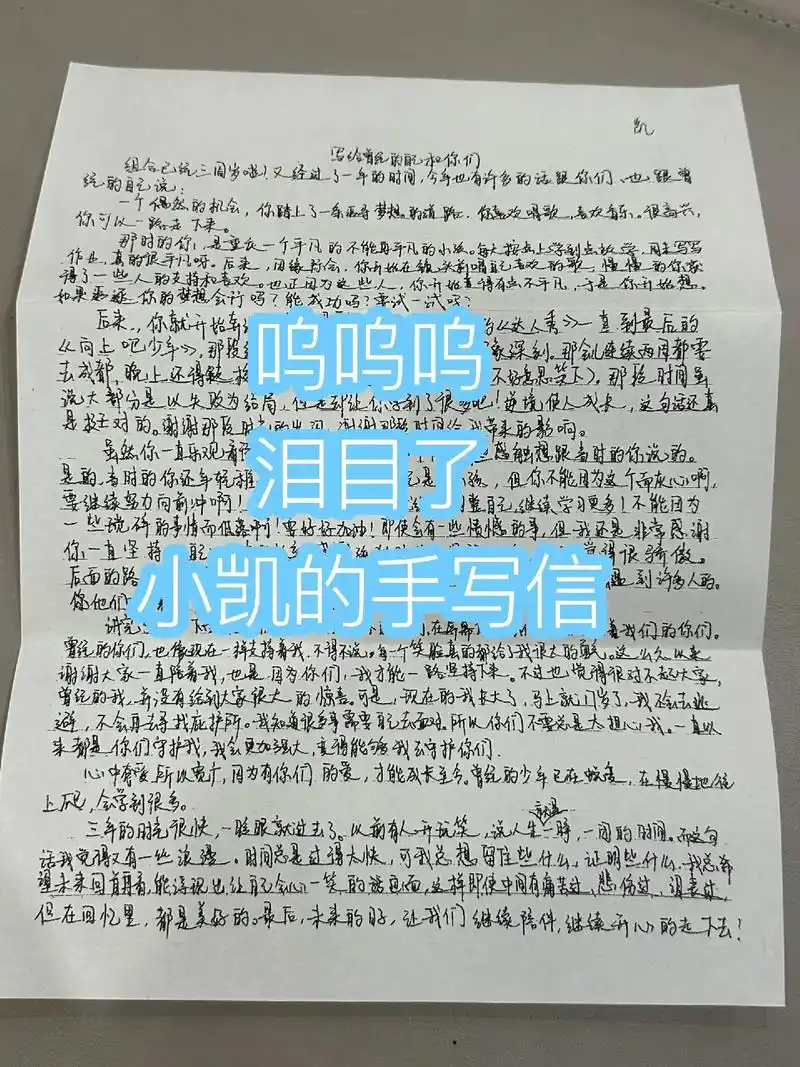 凯
写给曾经的自己和你们
组合已经三周岁啦！又经过了一年的时间，今年也有许多的话跟你们、也跟曾
经的自己说：
一个偶然的机会，你踏上了一条追寻梦想的道路，你喜欢唱歌，喜欢音乐。很高兴，
你可以一路走下来。
那时的你，是重庆一个平凡的不能再平凡的小孩。每天按点上学到点放学，周末写写
作业，真的很平凡呀。后来，因缘际会，你开始在镜头前唱自己喜欢的歌，慢慢的你获
得了一些人的支持和喜欢。也正因为这些人，你开始觉得有点不平凡，于是你开始想。
如果追逐你的梦想会行吗？能成功吗？要试一试吗？
后来，你就开始
的《达人秀》一直到最后的
《向上吧少年》，那段经
象深刻。那会儿继续两周都要
去成都，晚上还得
不好意思笑下）。那段时间虽
说大部分是以失败为结局，但
让你学到了很多吧！逆境使人成长，这句话还真
是挺对的。谢谢那段时光的出现，谢谢那段时间给我带来的影响。
虽然你一直乐观看
些感触想跟当时的你说的。
是的，当时的你还年轻
但你不能因为这个而灰心啊，
要继续努力向前冲啊！
整自己，继续学习更多！不能因为
一些琐碎的事情而低落啊！要好好加油！即使会有一些遗憾的事，但我还是非常感谢
你一直坚持
觉得很骄傲。
后面的路
遇到许多人的。
你他们
讲完
着我们的你们。
曾经的你们，也像现在一样支持着我，不得不说，每一个笑脸真的都给了我很大的勇气。这么久以来
谢谢大家一直陪着我，也是因为你们，我才能一路坚持下来。不过也觉得很对不起大家，
曾经的我，并没有给到大家很大的惊喜。可是，现在的我长大了，马上就17岁了，我不会去逃
避，不会再去寻找庇护所。我知道很多事需要自己去面对。所以你们不要总是太担心我。一直以
来都是你们守护我，我会更加强大，变得能够我去守护你们。
心中有爱所以宽广，因为有你们的爱，才能成长至今。曾经的少年已在蜕变，在慢慢地往
上爬，会学到很多。
三年的时光很快，一眨眼就过去了。以前有人开玩笑，说人生就是一睁，一闭的时间。而这句
话我觉得又有一些浪漫。时间总是过得太快，可我总想留住些什么，证明些什么。我总希
望未来回首再看，能浮现出让自己会心一笑的话画面，这样即使中间有痛苦过、悲伤过、沮丧过，
但在回忆里，都是美好的。最后，未来的日子，让我们继续陪伴，继续开心的走下去！
呜呜呜
泪目了
小凯的手写信